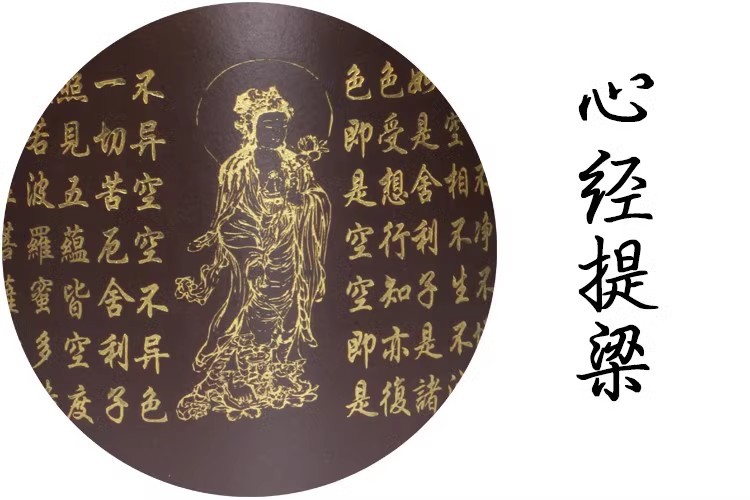 菩薩
若波羅蜜多
照見五蘊皆空度
一切苦厄舍利子
不异空空不异色
色即是空空即是
色受想行知亦復
是舍利子是諸
空相不生不
不净不
心经提梁